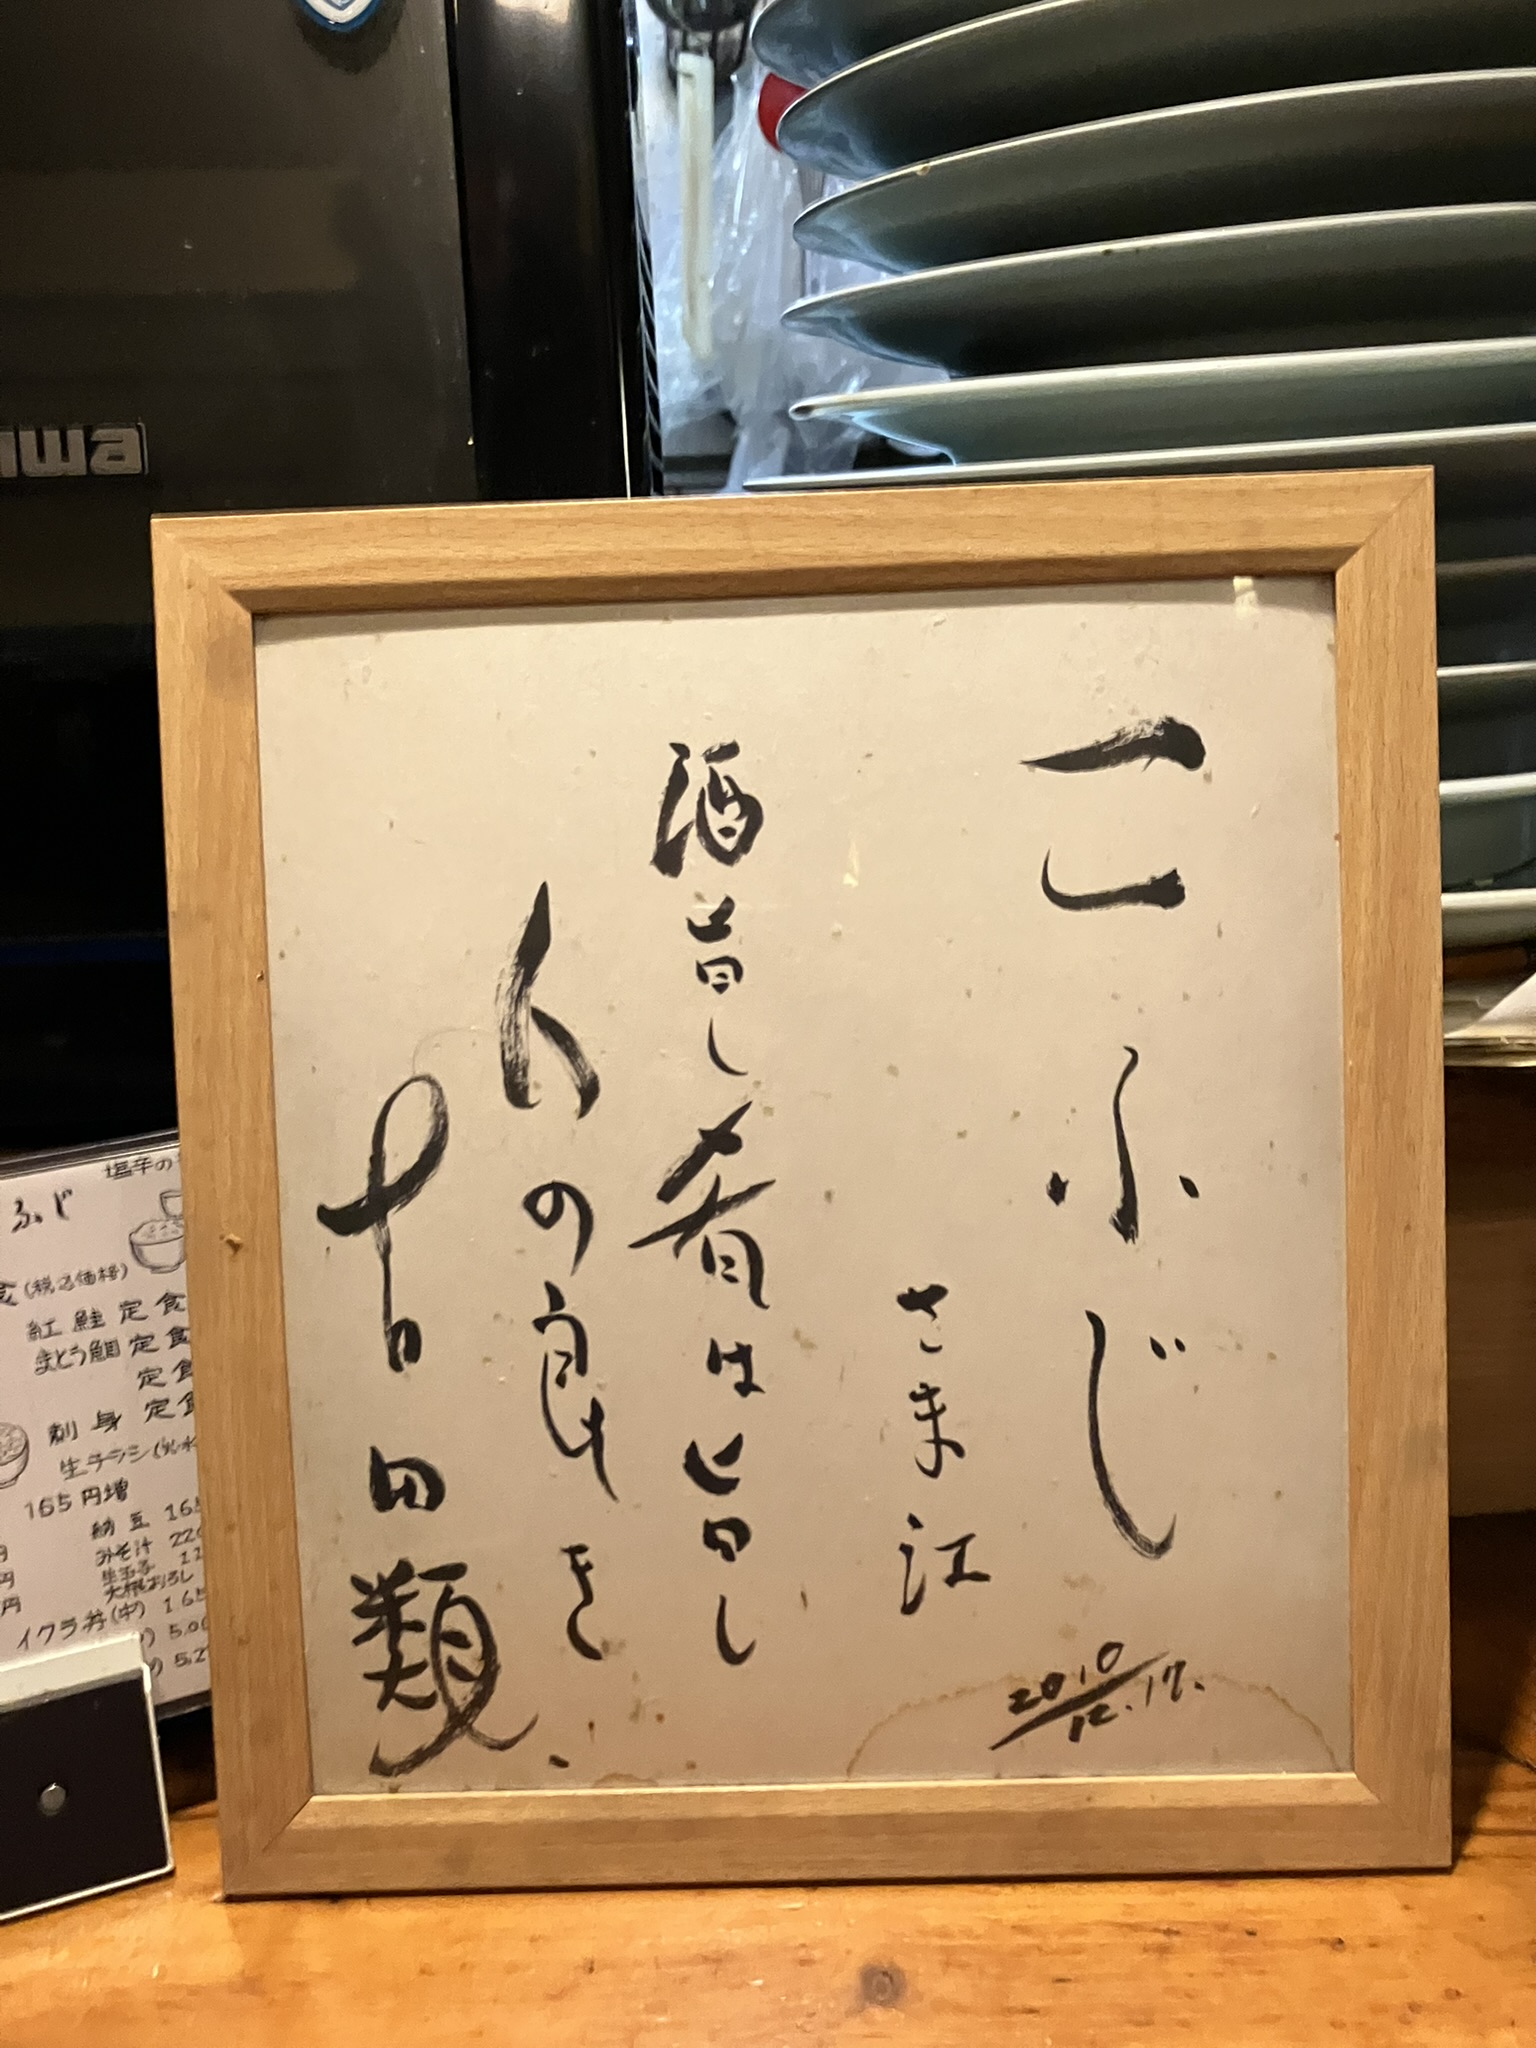 こふじ
さま江
2010/12.17.
酒旨し肴は旨し
人の良き
吉田類
塩辛の
ふじ
食(税込価格)
紅鮭定食
まとう鯛定食
定食
刺身定食
生チラシ
165円増
納豆 165
みそ汁 220
生玉子 11
大根おろし
イクラ丼(中) 165
円
円
円
5,0
5,2
iwa